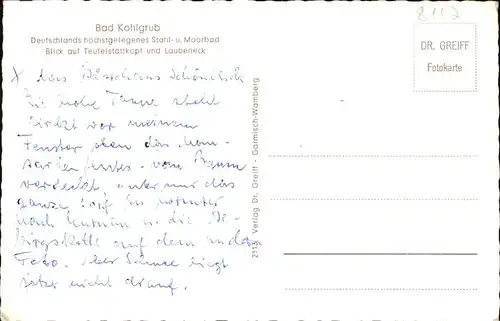 8112
Bad Kohlgrub
Deutschlands höchstgelegenes Stahl- u. Moorbad
Blick auf Teufelstättkopf und Laubeneck
DR. GREIFF
Fotokarte
x das
Die hohe Tanne steht
direkt vor meinem
Fenster oben das Man-
sardenfenster - vom Baum
verdeckt, unter mir das
ganze Dorf
nach u. die Ge-
birgskette auf dem andern
Foto. Aber Schnee liegt
jetzt nicht drauf.
2115 Verlag Dr. Greiff - Garmisch-Wamberg